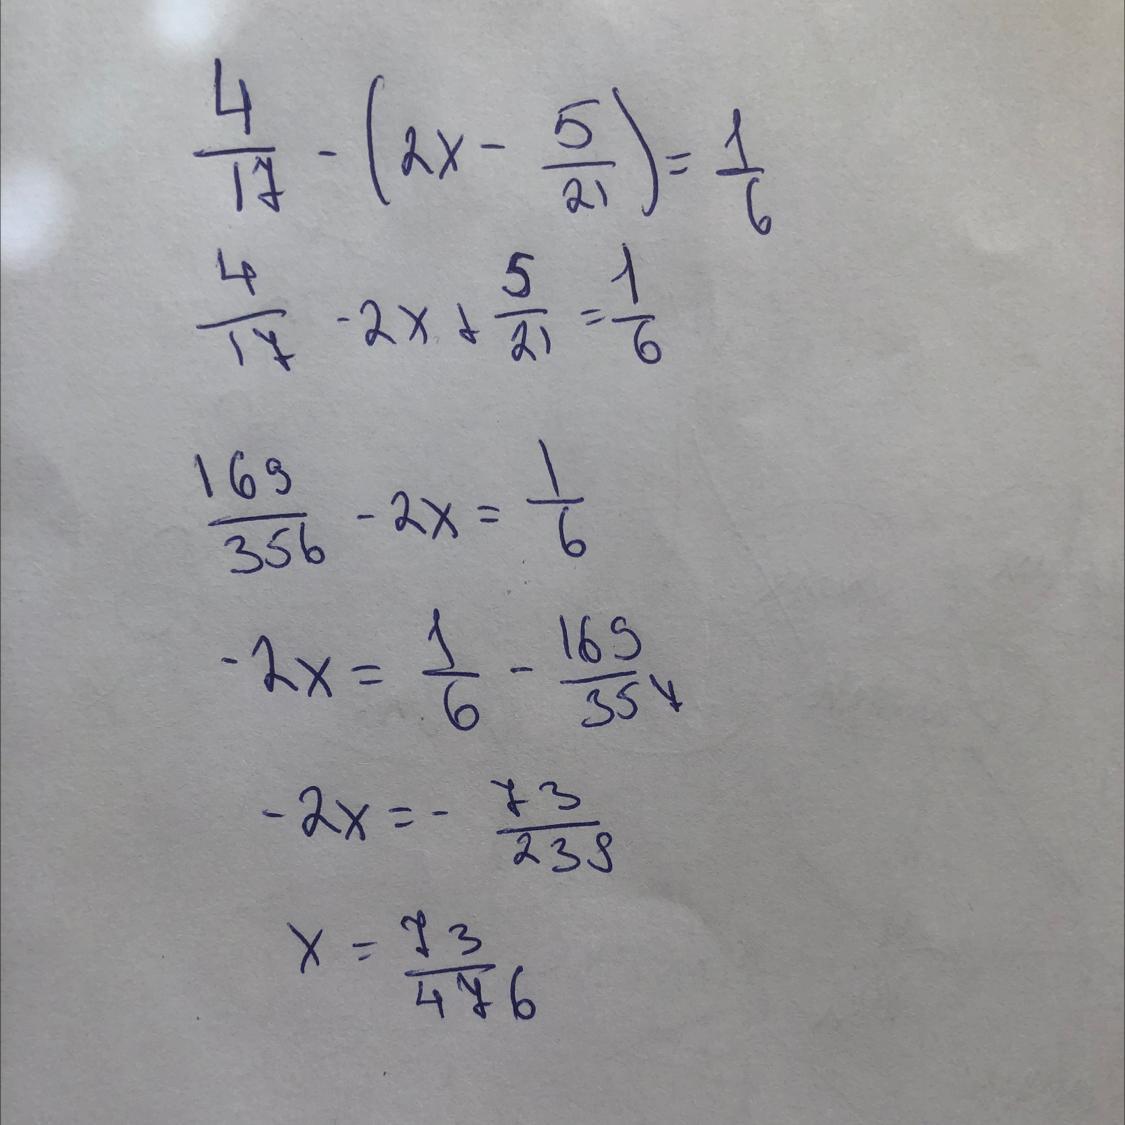 4/17 - (2x - 5/21) = 1/6
4/17 - 2x + 5/21 = 1/6
169/356 - 2x = 1/6
-2x = 1/6 - 169/357
-2x = - 73/239
x = 73/476